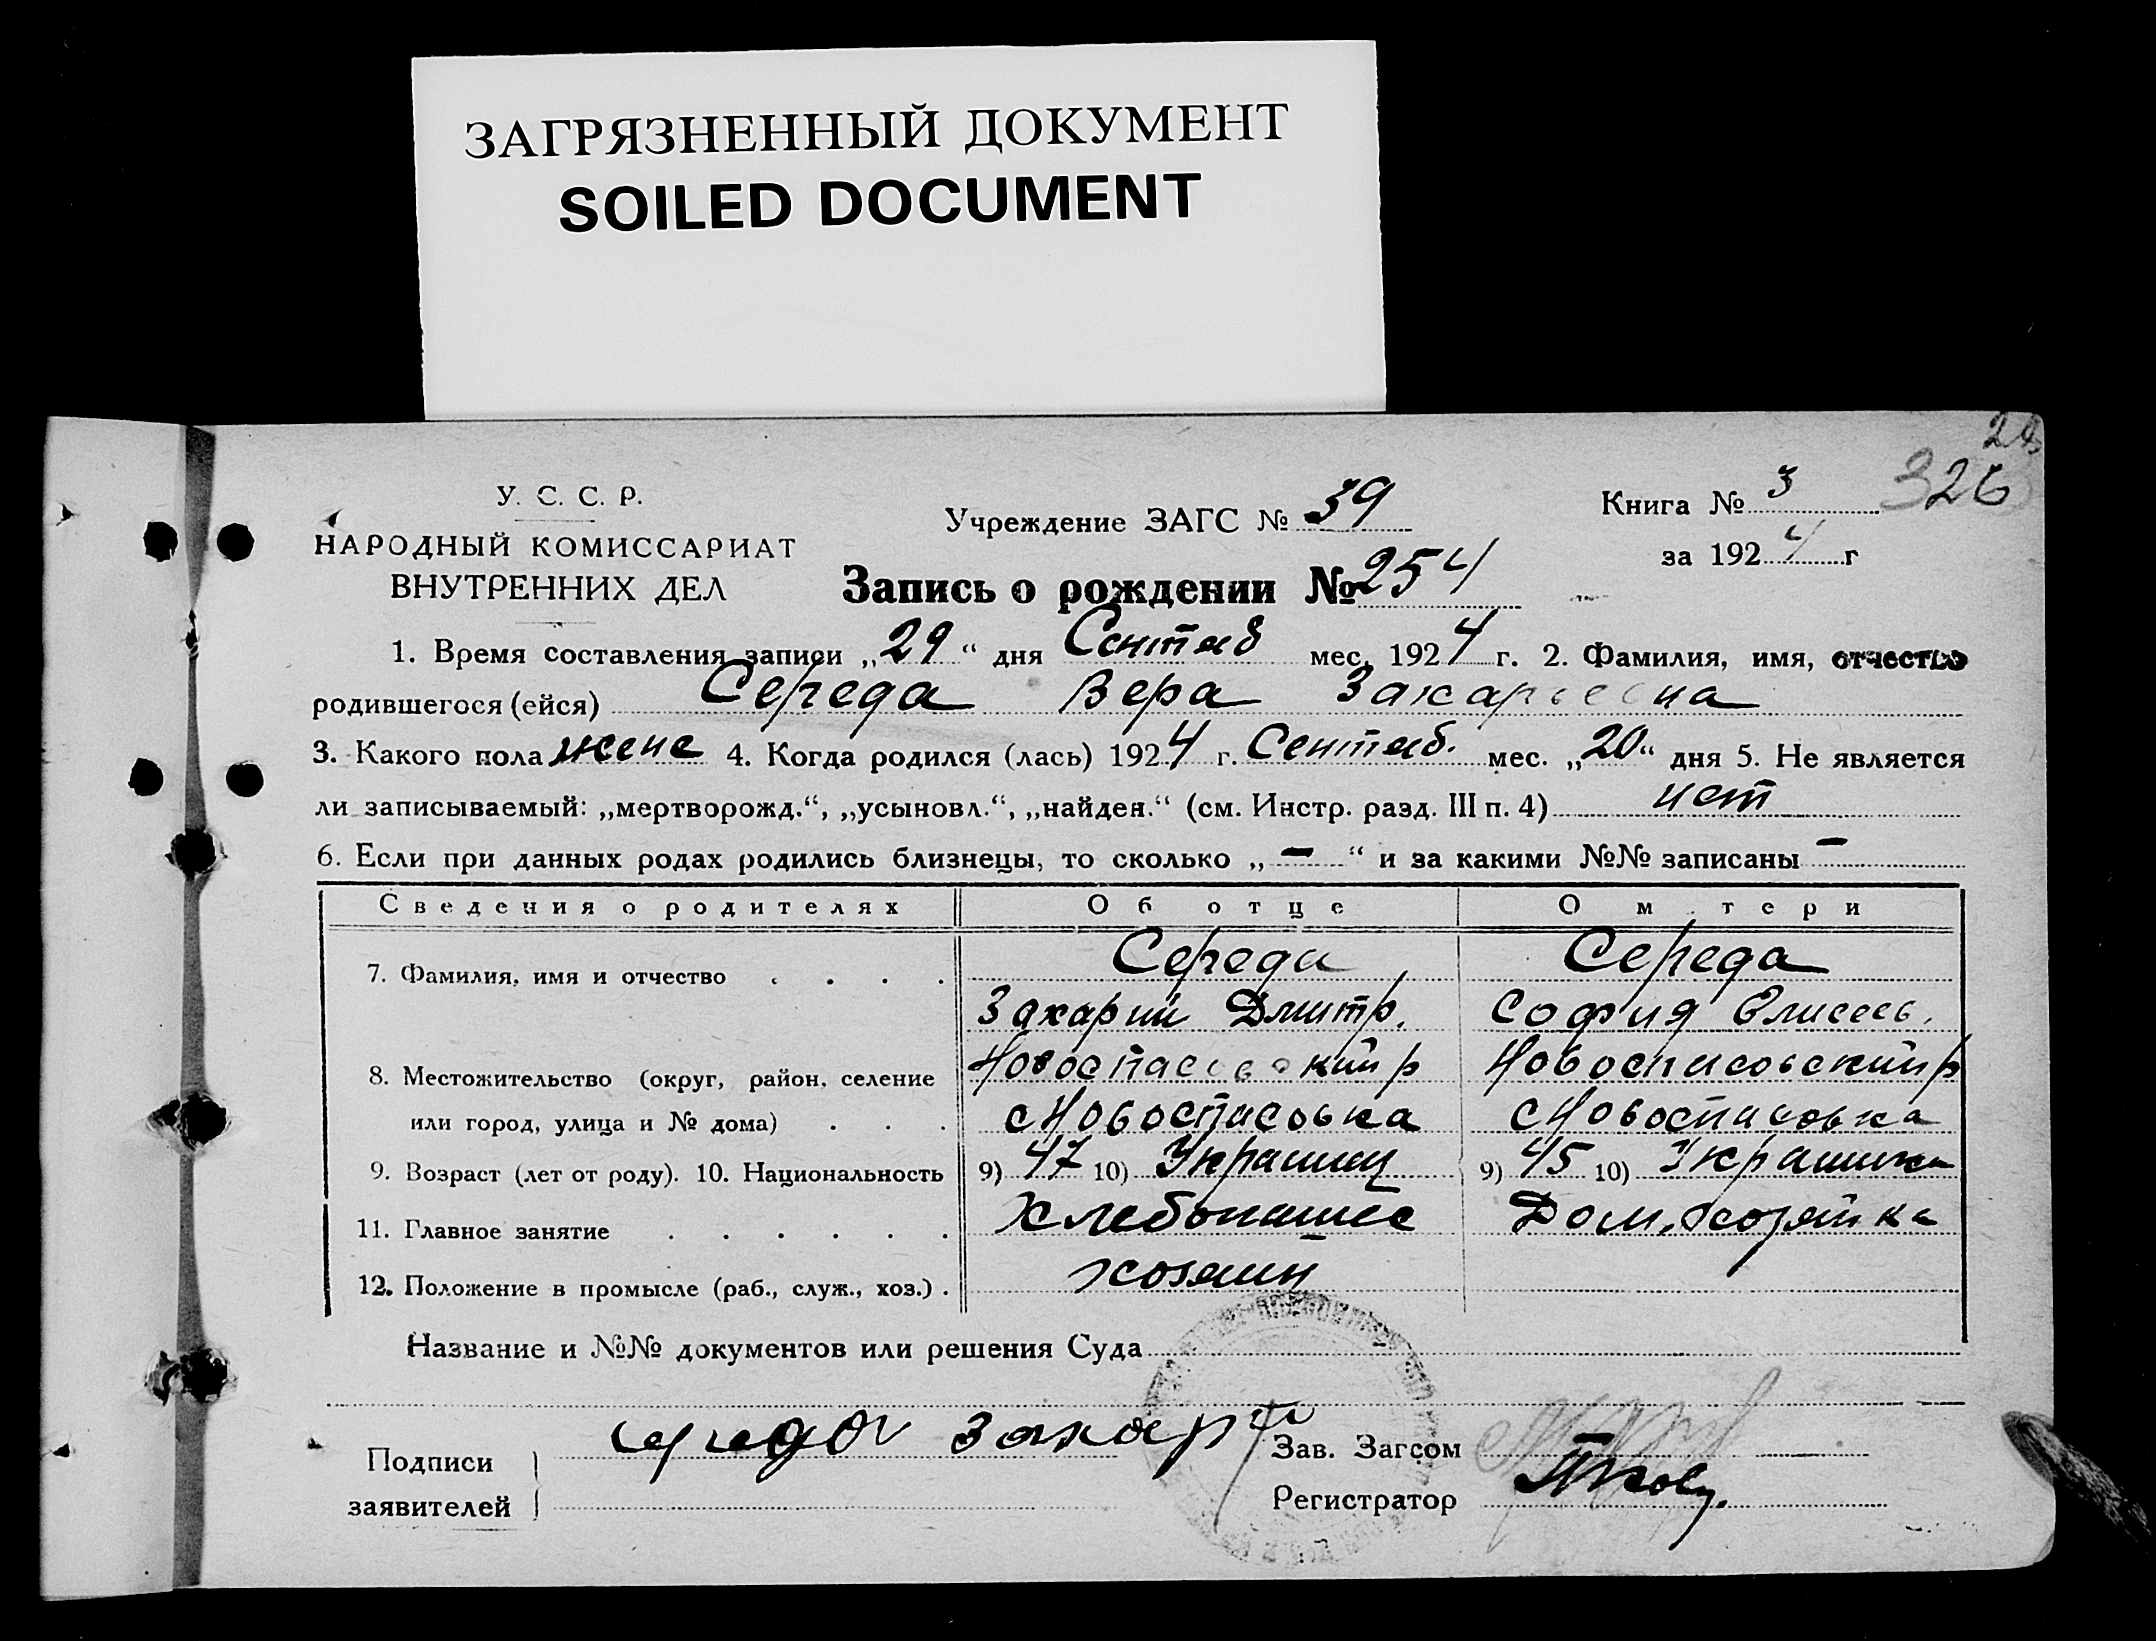 ЗАГРЯЗНЕННЫЙ ДОКУМЕНТ
SOILED DOCUMENT
326
У. С. С. Р.
НАРОДНЫЙ КОМИССАРИАТ
ВНУТРЕННИХ ДЕЛ
Учреждение ЗАГС № 39
Книга № 3
за 1924 г
Запись о рождении № 254
1. Время составления записи „29“ дня Сентяб мес. 1924 г. 2. Фамилия, имя, отчество
родившегося (ейся) Середа Вера Захарьевна
3. Какого пола жене 4. Когда родился (лась) 1924 г. Сентяб. мес. „20“ дня 5. Не является
ли записываемый: „мертворожд.“, „усыновл.“, „найден.“ (см. Инстр. разд. III п. 4) нет
6. Если при данных родах родились близнецы, то сколько „—“ и за какими №№ записаны —
Сведения о родителях Об отце О м тери
7. Фамилия, имя и отчество . . . . Середа Середа
Захарий Дмитр. София Елисеев.
8. Местожительство (округ, район, селение Новоспасовский р Новоспасовский р
или город, улица и № дома) . . . с Новоспасовка с Новоспасовка
9. Возраст (лет от роду). 10. Национальность 9) 47 10) Украинец 9) 45 10) Украинка
11. Главное занятие . . . . . . Хлебопашес Дом. хозяйка
12. Положение в промысле (раб., служ., хоз.) . хозяин
Название и №№ документов или решения Суда
Подписи
заявителей
середа захар
Зав. Загсом
Регистратор